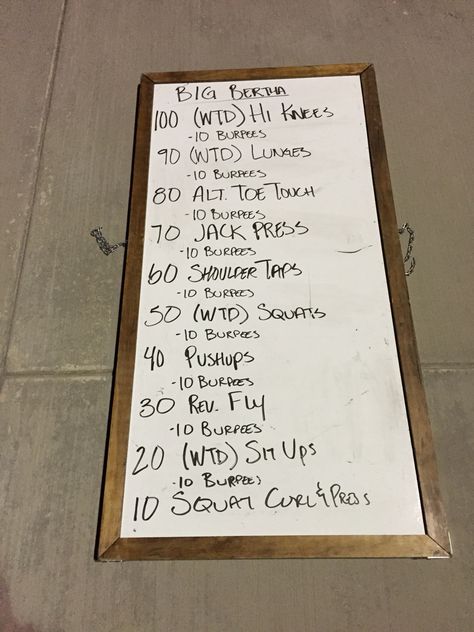 BIG BERTHA
100 (WTD) HI KNEES
-10 BURPEES
90 (WTD) LUNGES
-10 BURPEES
80 ALT. TOE TOUCH
-10 BURPEES
70 JACK PRESS
-10 BURPEES
60 SHOULDER TAPS
-10 BURPEES
50 (WTD) SQUATS
-10 BURPEES
40 PUSHUPS
-10 BURPEES
30 REV. FLY
-10 BURPEES
20 (WTD) SIT UPS
-10 BURPEES
10 SQUAT CURL & PRESS